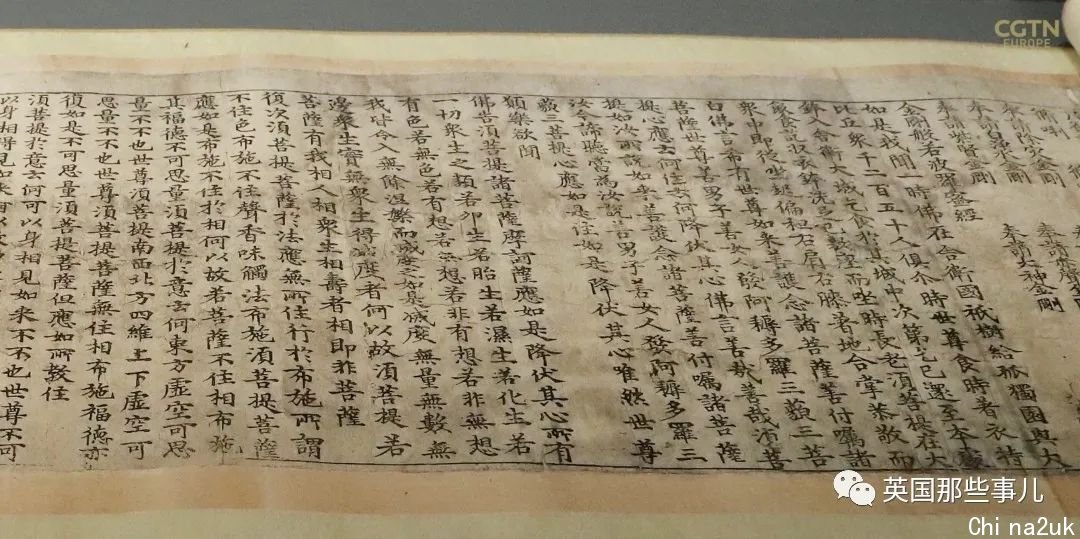 CGTN
EUROPE
奉請紫賢金剛 奉請大神金剛
金剛般若波羅蜜經
如是我聞一時佛在舍衛國祇樹給孤獨園與大
比丘衆千二百五十人俱尒時世尊食時著衣持
鉢入舍衛大城乞食於其城中次第乞已還至本處
飯食訖收衣鉢洗足已敷座而坐時長老須菩提在大
衆中即從坐起偏袒右肩右膝著地合掌恭敬而
白佛言希有世尊如來善護念諸菩薩善付囑諸
菩薩世尊善男子善女人發阿耨多羅三藐三菩
提心應云何住云何降伏其心佛言善哉善哉須菩
提如汝所說如來善護念諸菩薩善付囑諸菩薩
汝今諦聽當為汝說善男子善女人發阿耨多羅三
藐三菩提心應如是住如是降伏其心唯然世尊
願樂欲聞
佛告須菩提諸菩薩摩訶薩應如是降伏其心所有
一切衆生之類若卵生若胎生若濕生若化生若
有色若無色若有想若無想若非有想若非無想
我皆令入無餘涅槃而滅度之如是滅度無量無數無
邊衆生實無衆生得滅度者何以故須菩提若
菩薩有我相人相衆生相壽者相即非菩薩
復次須菩提菩薩於法應無所住行於布施所謂
不住色布施不住聲香味觸法布施須菩提菩薩
應如是布施不住於相何以故若菩薩不住相布施
其福德不可思量須菩提於意云何東方虛空可思
量不不也世尊須菩提南西北方四維上下虛空可
思量不不也世尊須菩提菩薩無住相布施福德亦
復如是不可思量須菩提菩薩但應如所教住
須菩提於意云何可以身相見如來不不也世尊不可
以身相得見如來何以故
英国那些事儿
Chi na2uk